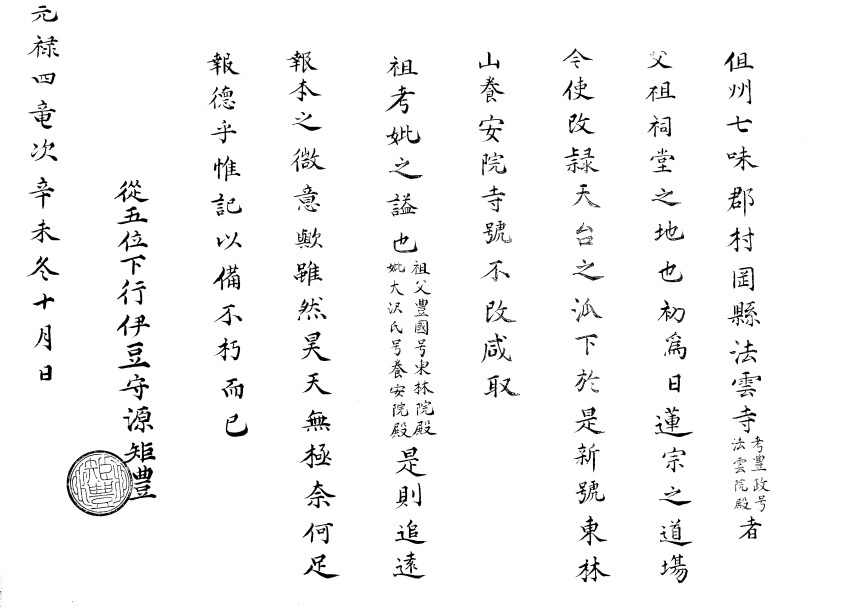 但州七味郡村岡縣法雲寺考豊政号法雲院殿者
父祖祠堂之地也初為日蓮宗之道場
今使改隷天台之派下於是新號東林
山養安院寺號不改咸取
祖考妣之謚也祖父豊國号東林院殿妣大沢氏号養安院殿是則追遠
報本之微意歟雖然昊天無極奈何足
報德乎惟記以備不朽而已
從五位下行伊豆守源矩豊
元禄四竜次辛未冬十月日
矩豊